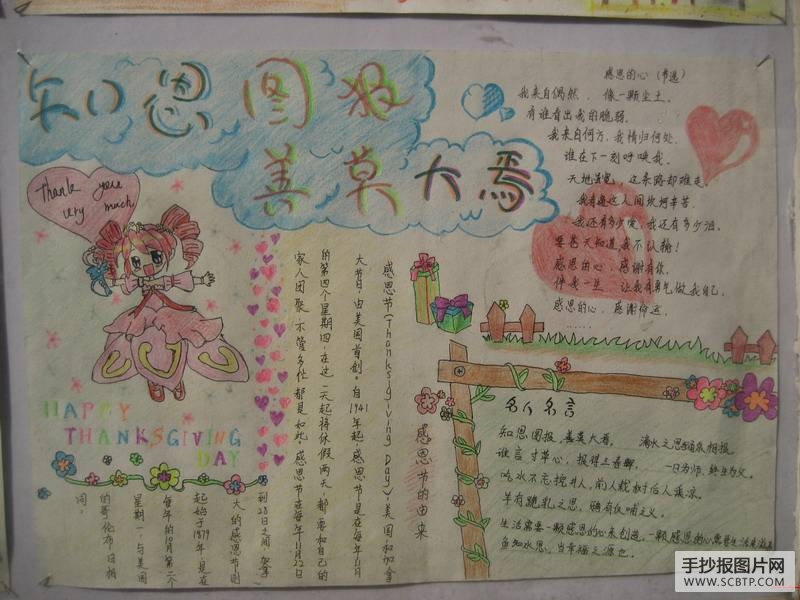 知恩图报
善莫大焉
Thank you
very much
HAPPY
THANKSGIVING
DAY
感恩的心（节选）
我来自偶然，像一颗尘土，
有谁看出我的脆弱，
我来自何方，我情归何处，
谁在下一刻呼唤我，
天地虽宽，这条路却难走，
我看遍这人间坎坷辛苦，
我还有多少爱，我还有多少泪，
要苍天知道我不认输！
感恩的心，感谢有你，
伴我一生，让我有勇气做我自己，
感恩的心，感谢命运，
......
感恩节的由来
感恩节(Thanksgiving Day)，美国和加拿
大节日，由美国首创。自1941年起，感恩节是在每年11月
的第四个星期四，在这一天起将休假两天，都要和自己的
家人团聚，不管多忙都是如此。感恩节在每年11月22日
到28日之间，加拿
大的感恩节则
起始于1879年，是在
每年的10月第二个
星期一，与美国
的哥伦布日相
同。
名人名言
知恩图报，善莫大焉。 滴水之恩，涌泉相报。
谁言寸草心，报得三春晖。 一日为师，终身为父。
吃水不忘挖井人，前人栽树后人乘凉。
羊有跪乳之恩，鸦有反哺之义。
生活需要一颗感恩的心来创造，一颗感恩的心需要生活来滋养
鱼知水恩，乃幸福之源也。
手抄报图片网
WWW.SCBTP.COM